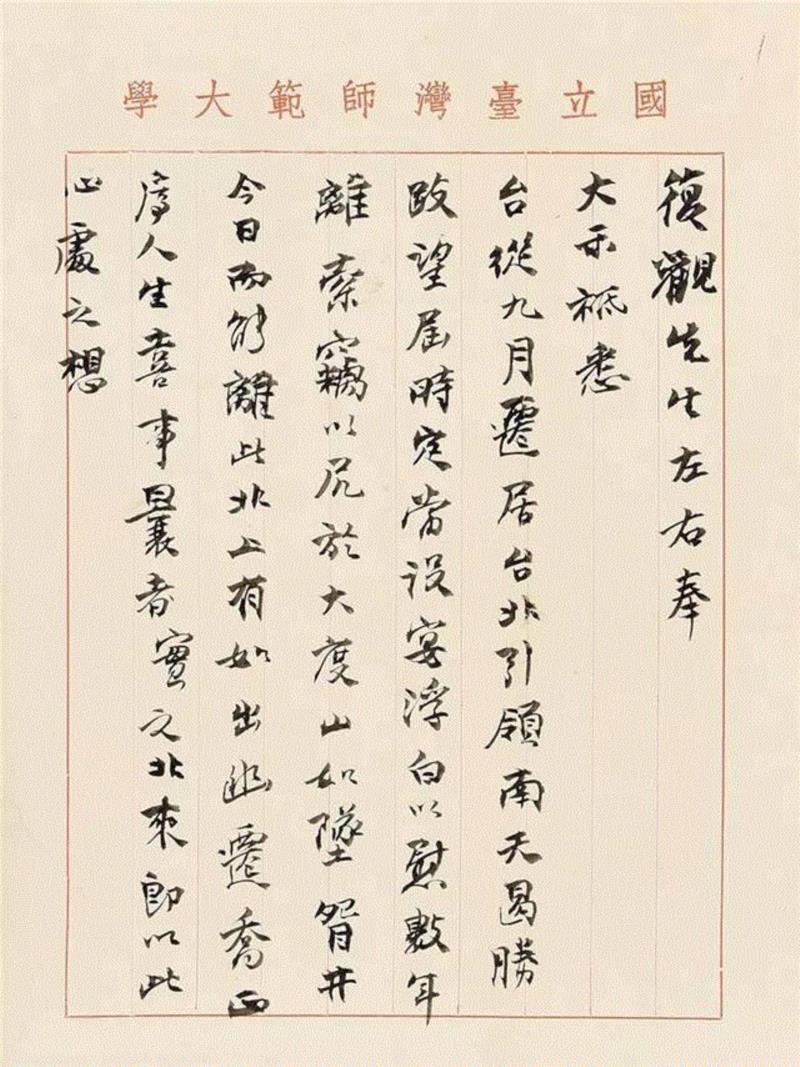 國立臺灣師範大學
復觀先生左右奉
大示祗悉
台從九月遷居台北引領南天曷勝
跂望屆時定當設宴浮白以慰數年
離索竊以凥於大度山如墜眢井
今日而能離此北上有如出幽遷喬正
人生喜事曩者實之北來即以此
心處之想